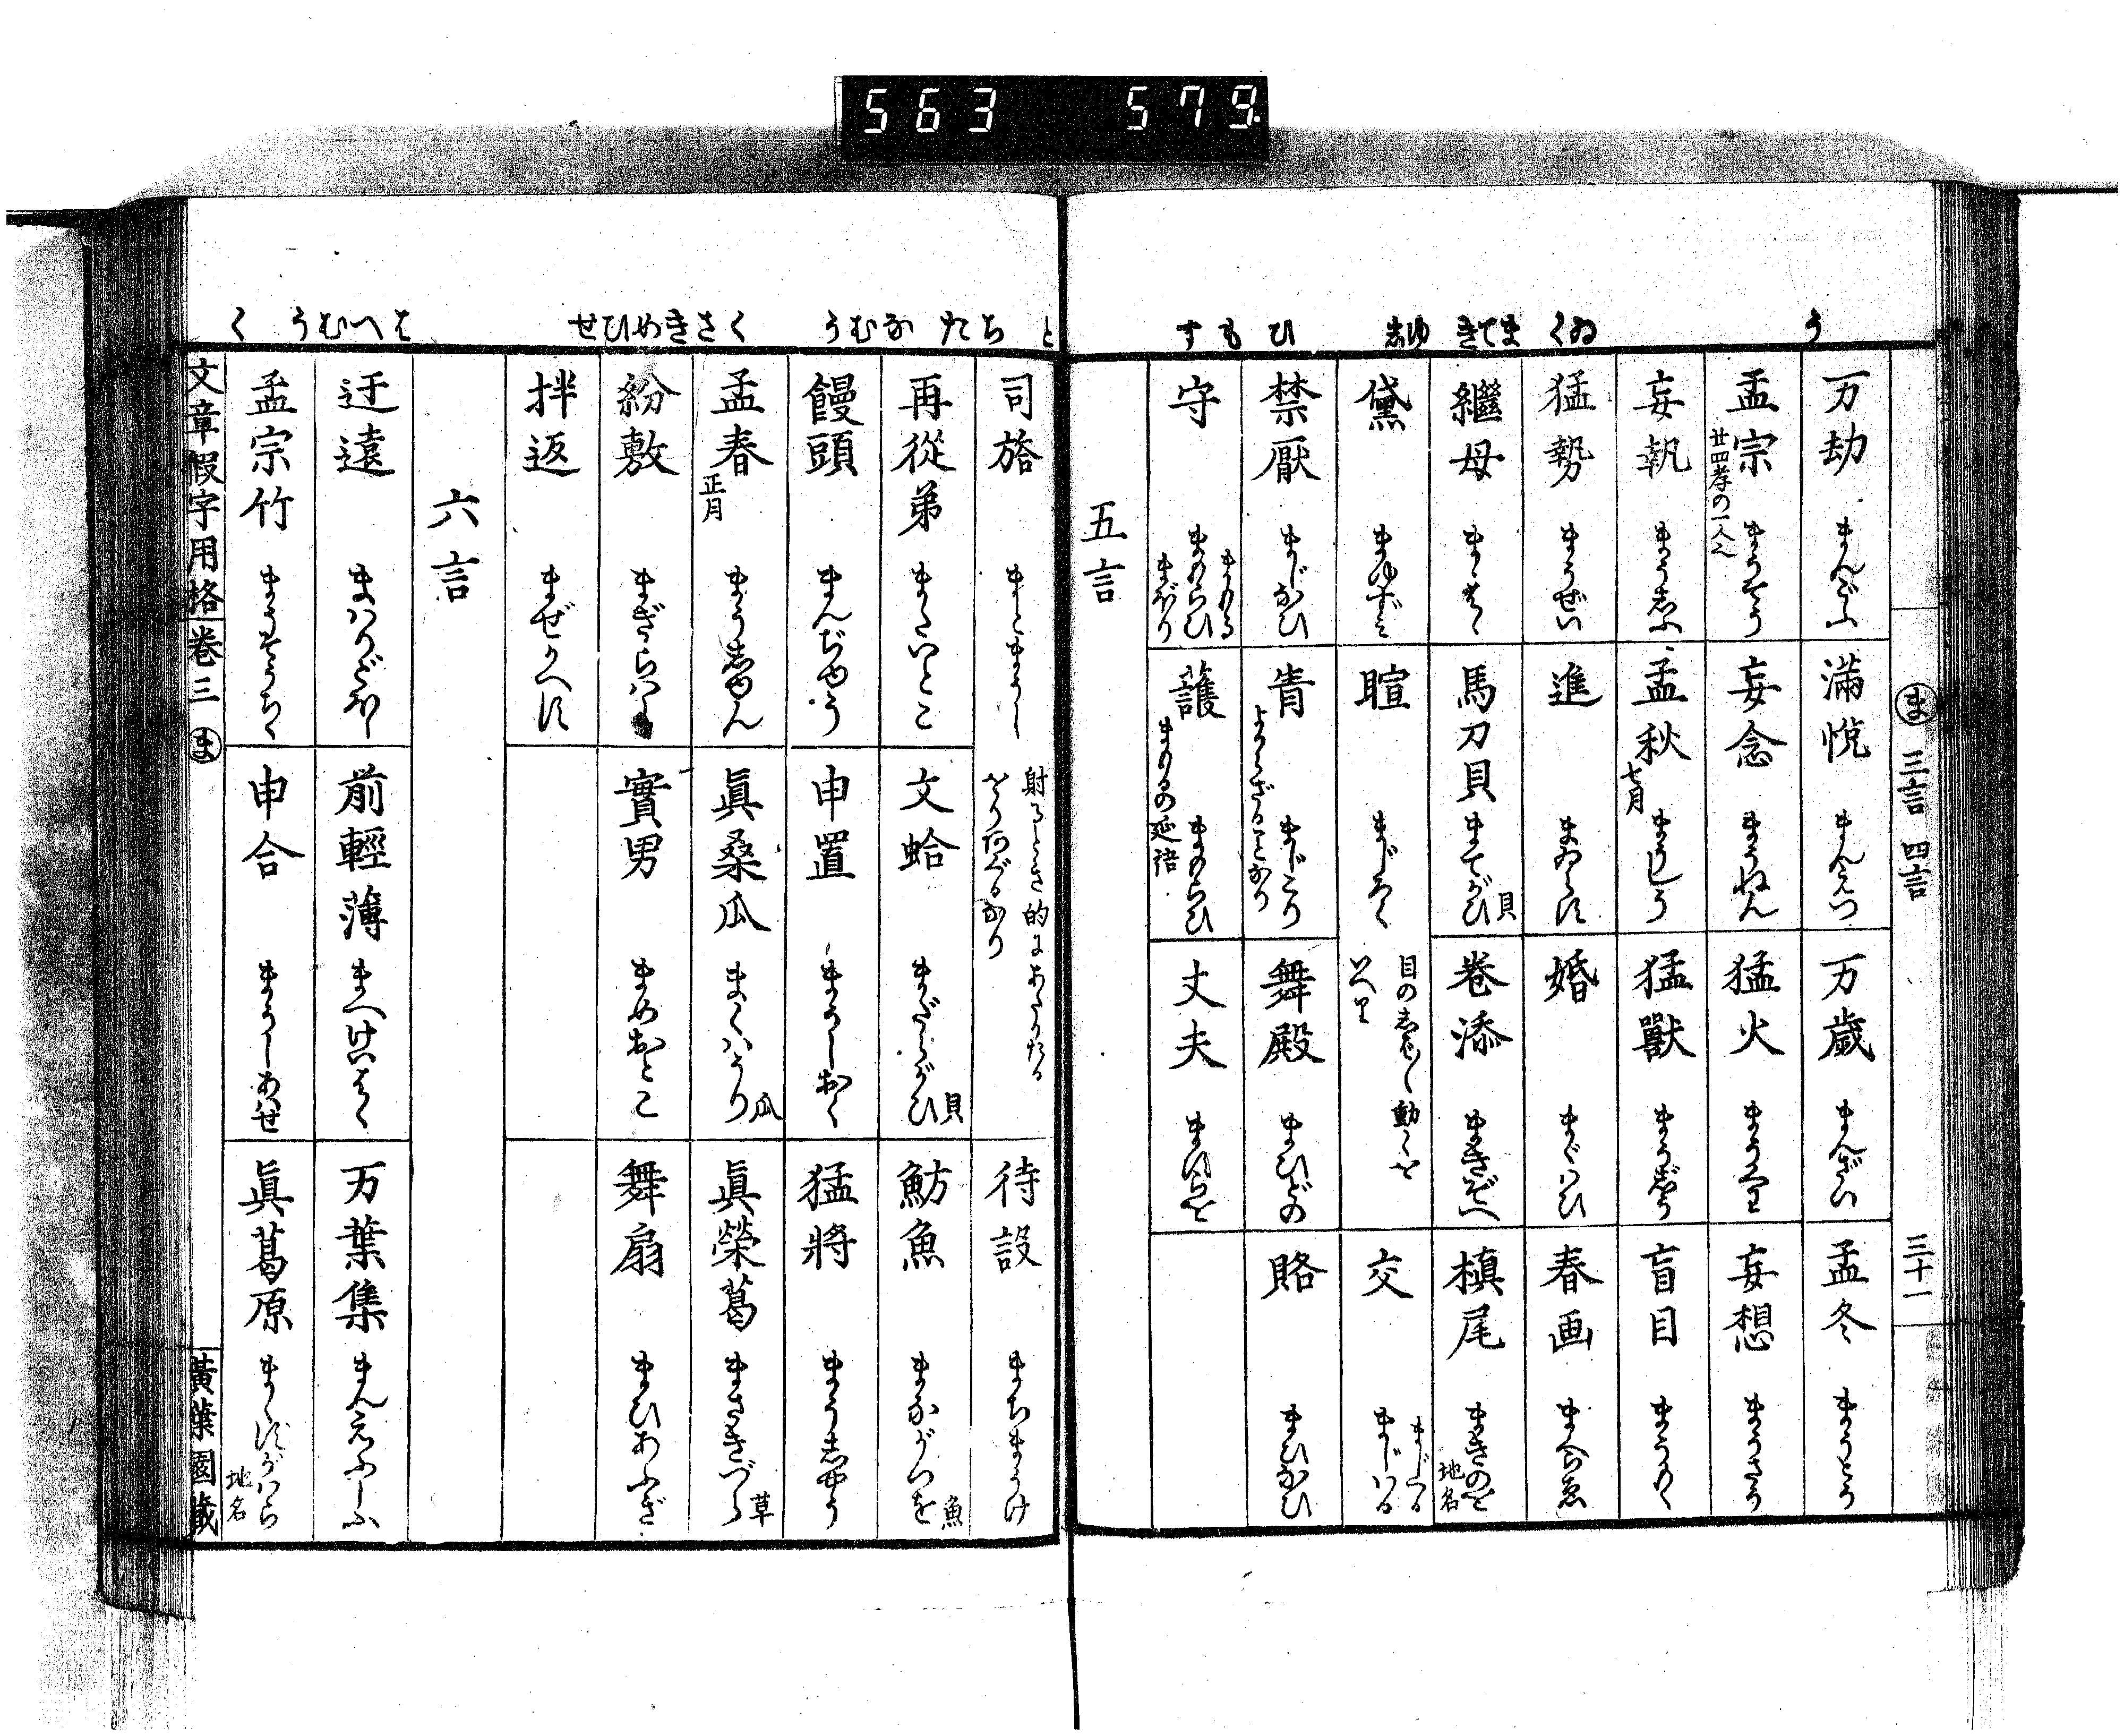 563 579.
う
ゐく
まてき
ゆ
ひ
もす
ま 三言 四言 三十一
万劫 まんごふ
満悦 まんえつ
万歳 まんざい
孟冬 まうとう
孟宗 廿四孝の一人 まうそう
妄念 まうねん
猛火
妄想 まうさう
妄執 まうしふ
孟秋 七月 まうしう
猛獣
盲目 まうもく
猛勢 まうぜい
進 まゐらす
婚 まぐはひ
春画
繼母 まゝはゝ
馬刀貝 まてがひ 貝
卷添 まきぞへ
槙尾 まきのを 地名
黛 まゆずミ
暄 まじろく 目の 動くを いへり
交 まじへる まじはる
禁厭 まじなひ
まじこり よからざることなり
舞殿 まひどの
賂 まひなひ
守 まもる まもらひ まぼり
護 まもるの延語 まもらひ
丈夫 ますらを
五言
とちたなむう くさきめひせ はへむうく
司 まとまうし 射るとき的にあたりたる
待設 まちまうけ
再從弟 またいとこ
文蛤 まだらがひ 貝
魴魚 まながつを 魚
饅頭 まんぢゆう
申置 まうしおく
猛將 まうしやう
孟春 正月 まうしゆん
眞桑瓜 まくはうり 瓜
眞榮葛 まさきづら 草
紛敷 まぎらはし
實男 まめおとこ
舞扇 まひあふぎ
拌返 まぜかへす
六言
迂遠 まはりどほし
前輕薄 まへけいはく
万葉集 まんえふしふ
孟宗竹 まうそうちく
申合 まうしあはせ
眞葛原 まくずがはら 地名
文章假字用格 卷三 ま 黃葉園藏